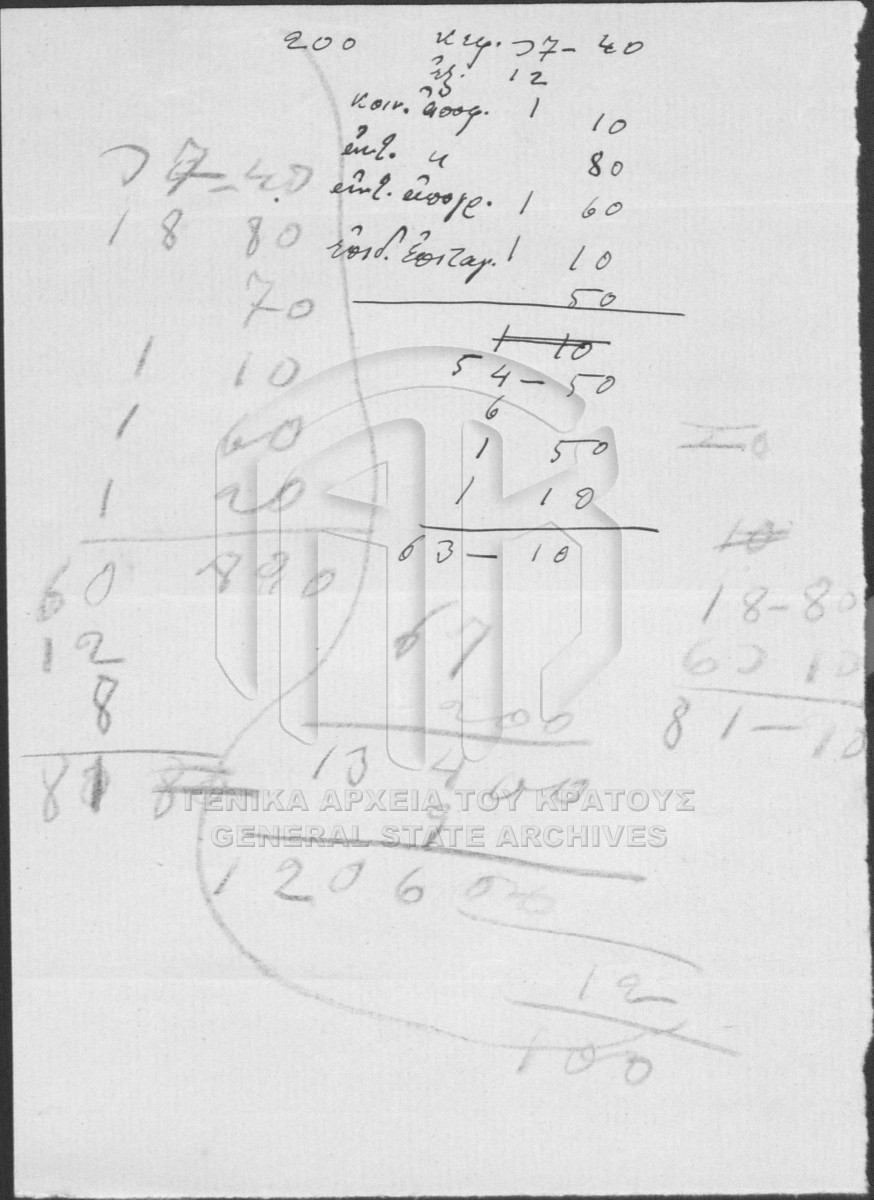 200 κεφ. 37-40
ἐξ. 12
κοιν. ἀπογ. 1 10
ἀντ. κ 80
ἀντ. ἀπογρ. 1 60
ἐπιδ. ἐπιταγ. 1 10
50
1 10
54-50
6
1 50
1 10
63-10
37-40
18 80
70
1 10
1 60
1 20
60 890
12
8
81
20
10
18-80
63 10
81-90
67
200
13 400
9
120600
12
100
ΓΕΝΙΚΑ ΑΡΧΕΙΑ ΤΟΥ ΚΡΑΤΟΥΣ
GENERAL STATE ARCHIVES